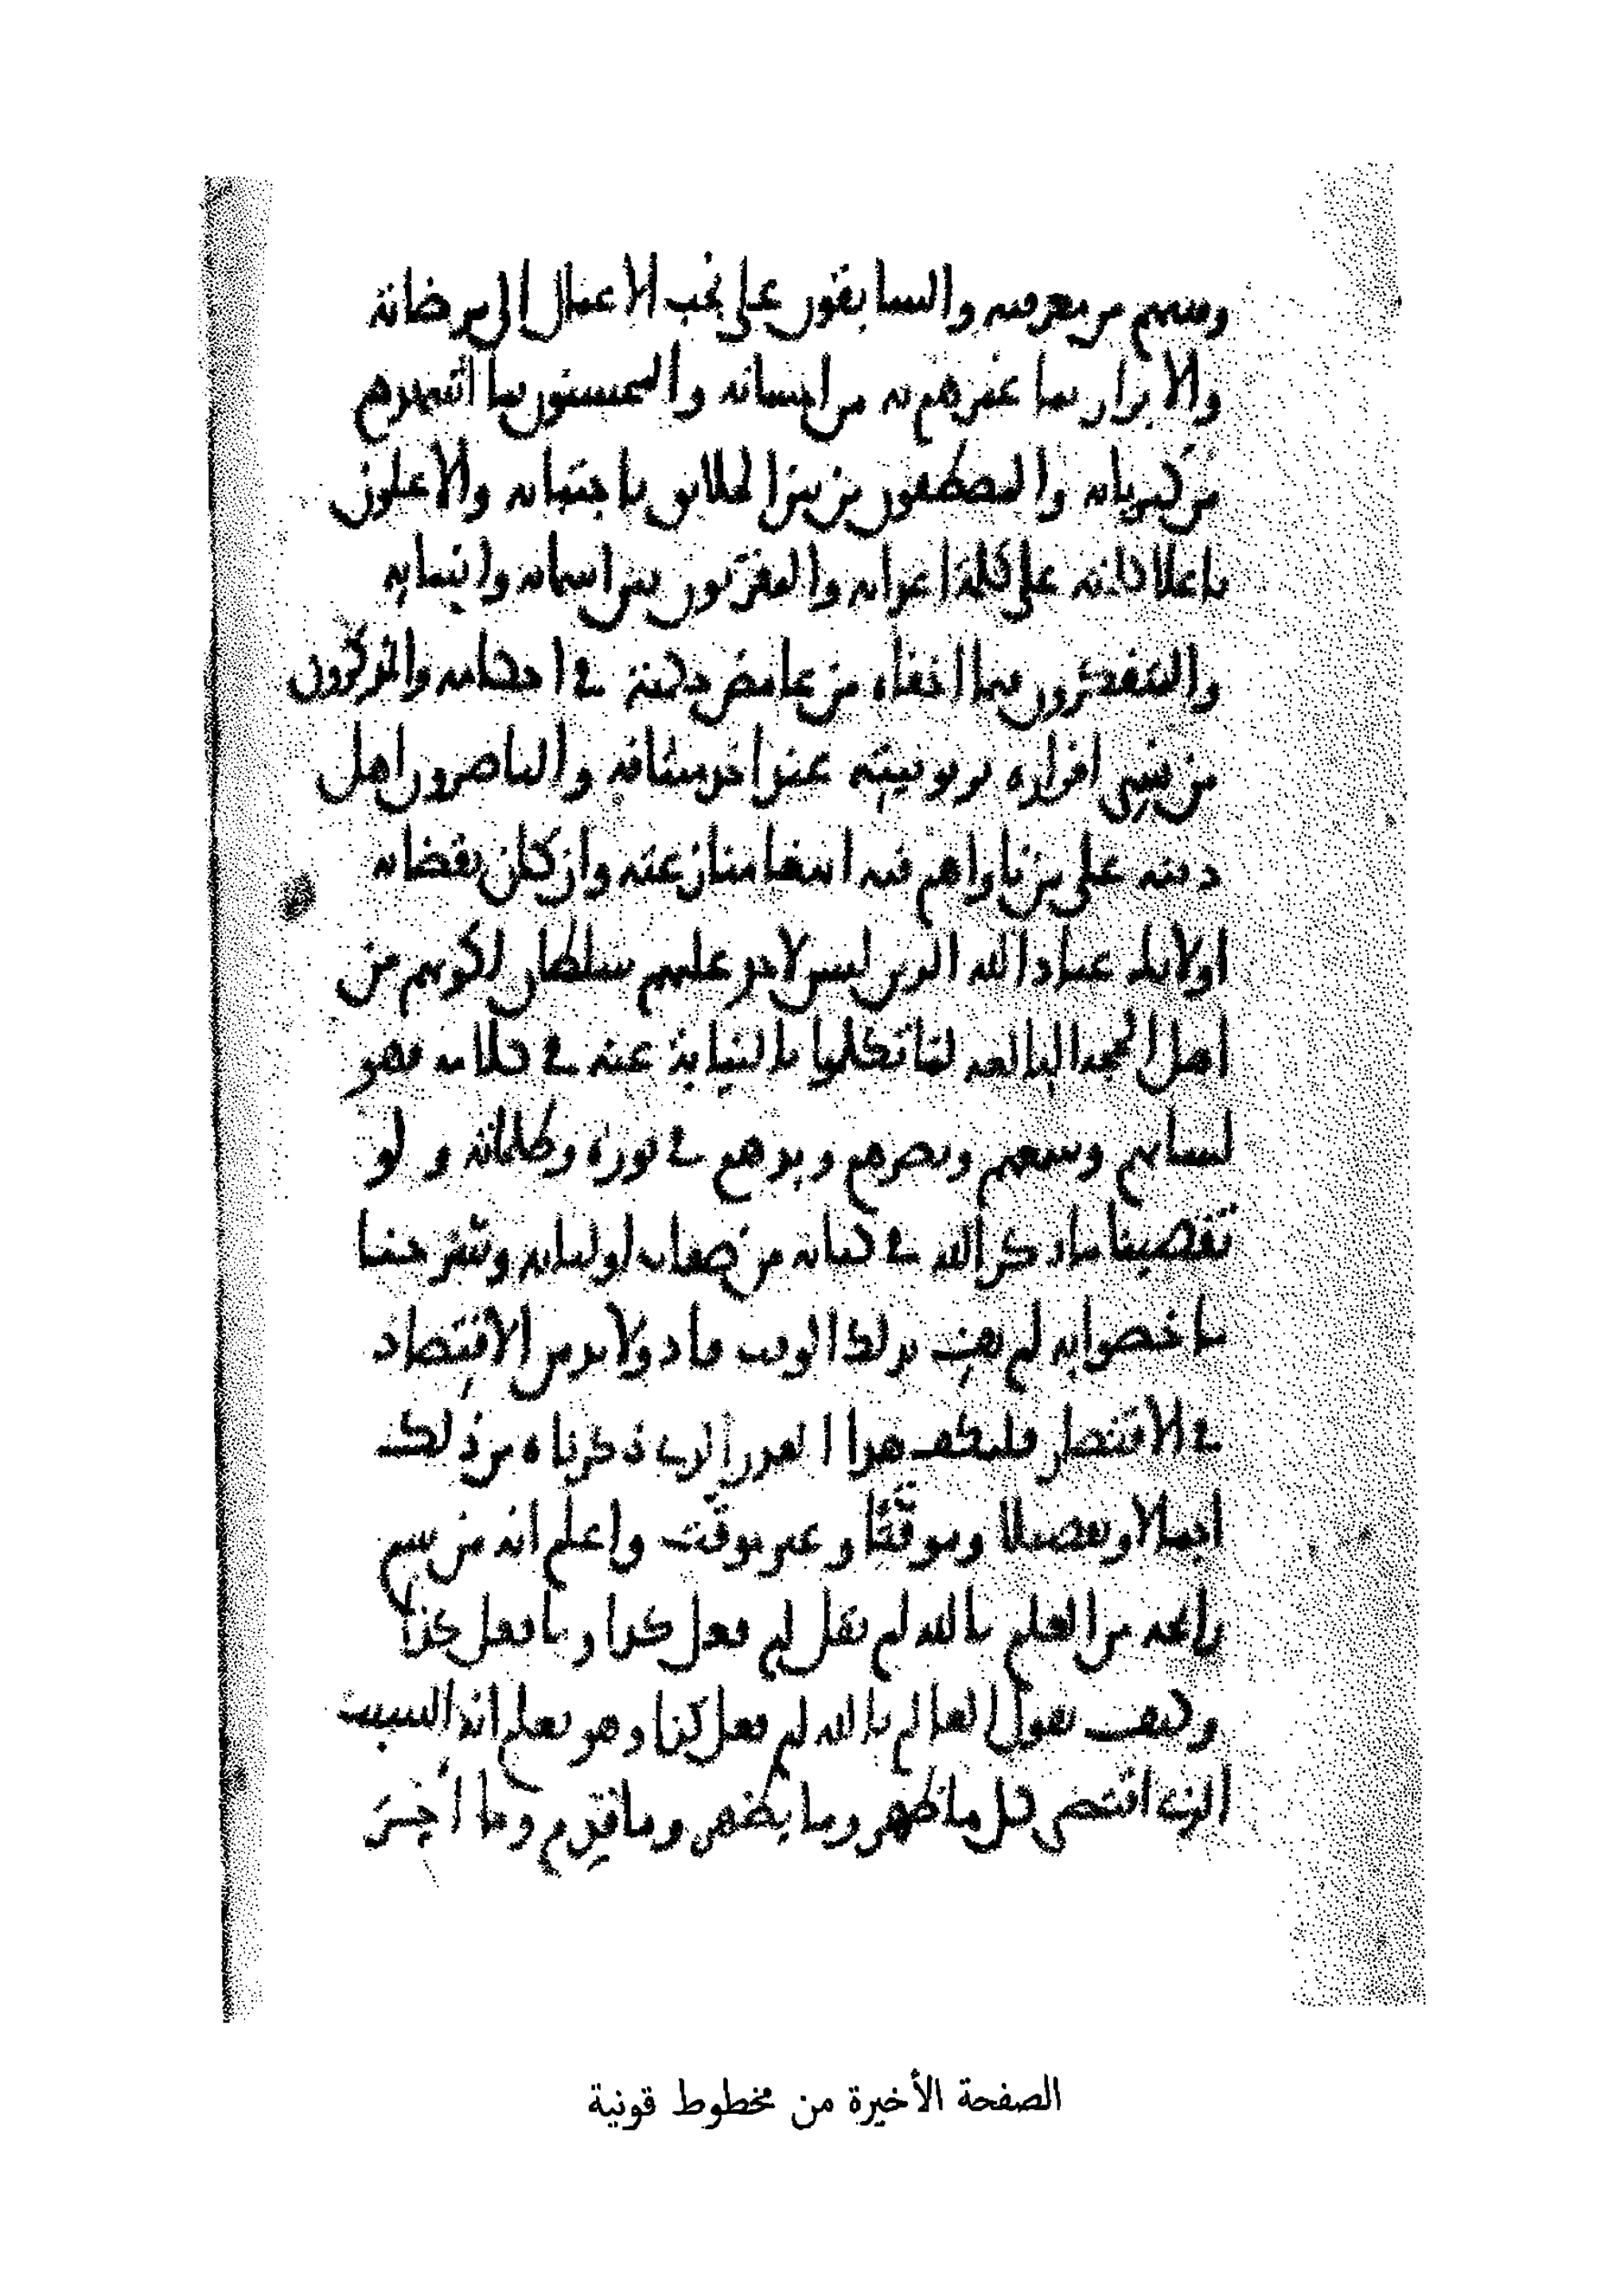 وبينهم من معرفته والسابقون على نجب الاعمال الى مرضاته
والابرار بما غمرهم به من احسانه والمحسنون بما اشهدهم
من كبريائه والمصطفون من بين الخلائق باجتبائه والاعلون
باعلاء كلمته على كلمة اعدائه والمقربون بين اسمائه وانبيائه
والمتفكرون فيما اخفاه من غامض حكمته في احكامه والمذكرون
من نسي اقراره بربوبيته عند اخذ ميثاقه والناصرون اهل
دينه على من ناواهم فيه ابتغا منازعته وان كان بقضائه
اولائك عباد الله الذين ليس لاحد عليهم سلطان لكونهم من
اهل الحجة البالغة لما تكلموا بالنيابة عنه في كلامه فهو
لسانهم وسمعهم وبصرهم ويدهم في نوره وظلماته ولو
تقصينا ما ذكر الله في كتابه من صفات اوليائه وشرحنا
ما خصوا به لم يف بذلك الوقت فاذ ولابد من الاقتصاد
في الاقتصار فليكف هذا القدر الذي ذكرناه من ذلك
اجمالا وتفصيلا وموقتا وغير موقت واعلم انه من شم
رائحة من العلم بالله لم يقل لم فعل كذا وما فعل كذا
وكيف يقول العالم بالله لم فعل كذا وهو يعلم انه السبب
الذي اقتضى كل ما ظهر وما يظهر وما قدم وما أخر
الصفحة الأخيرة من مخطوط قونية